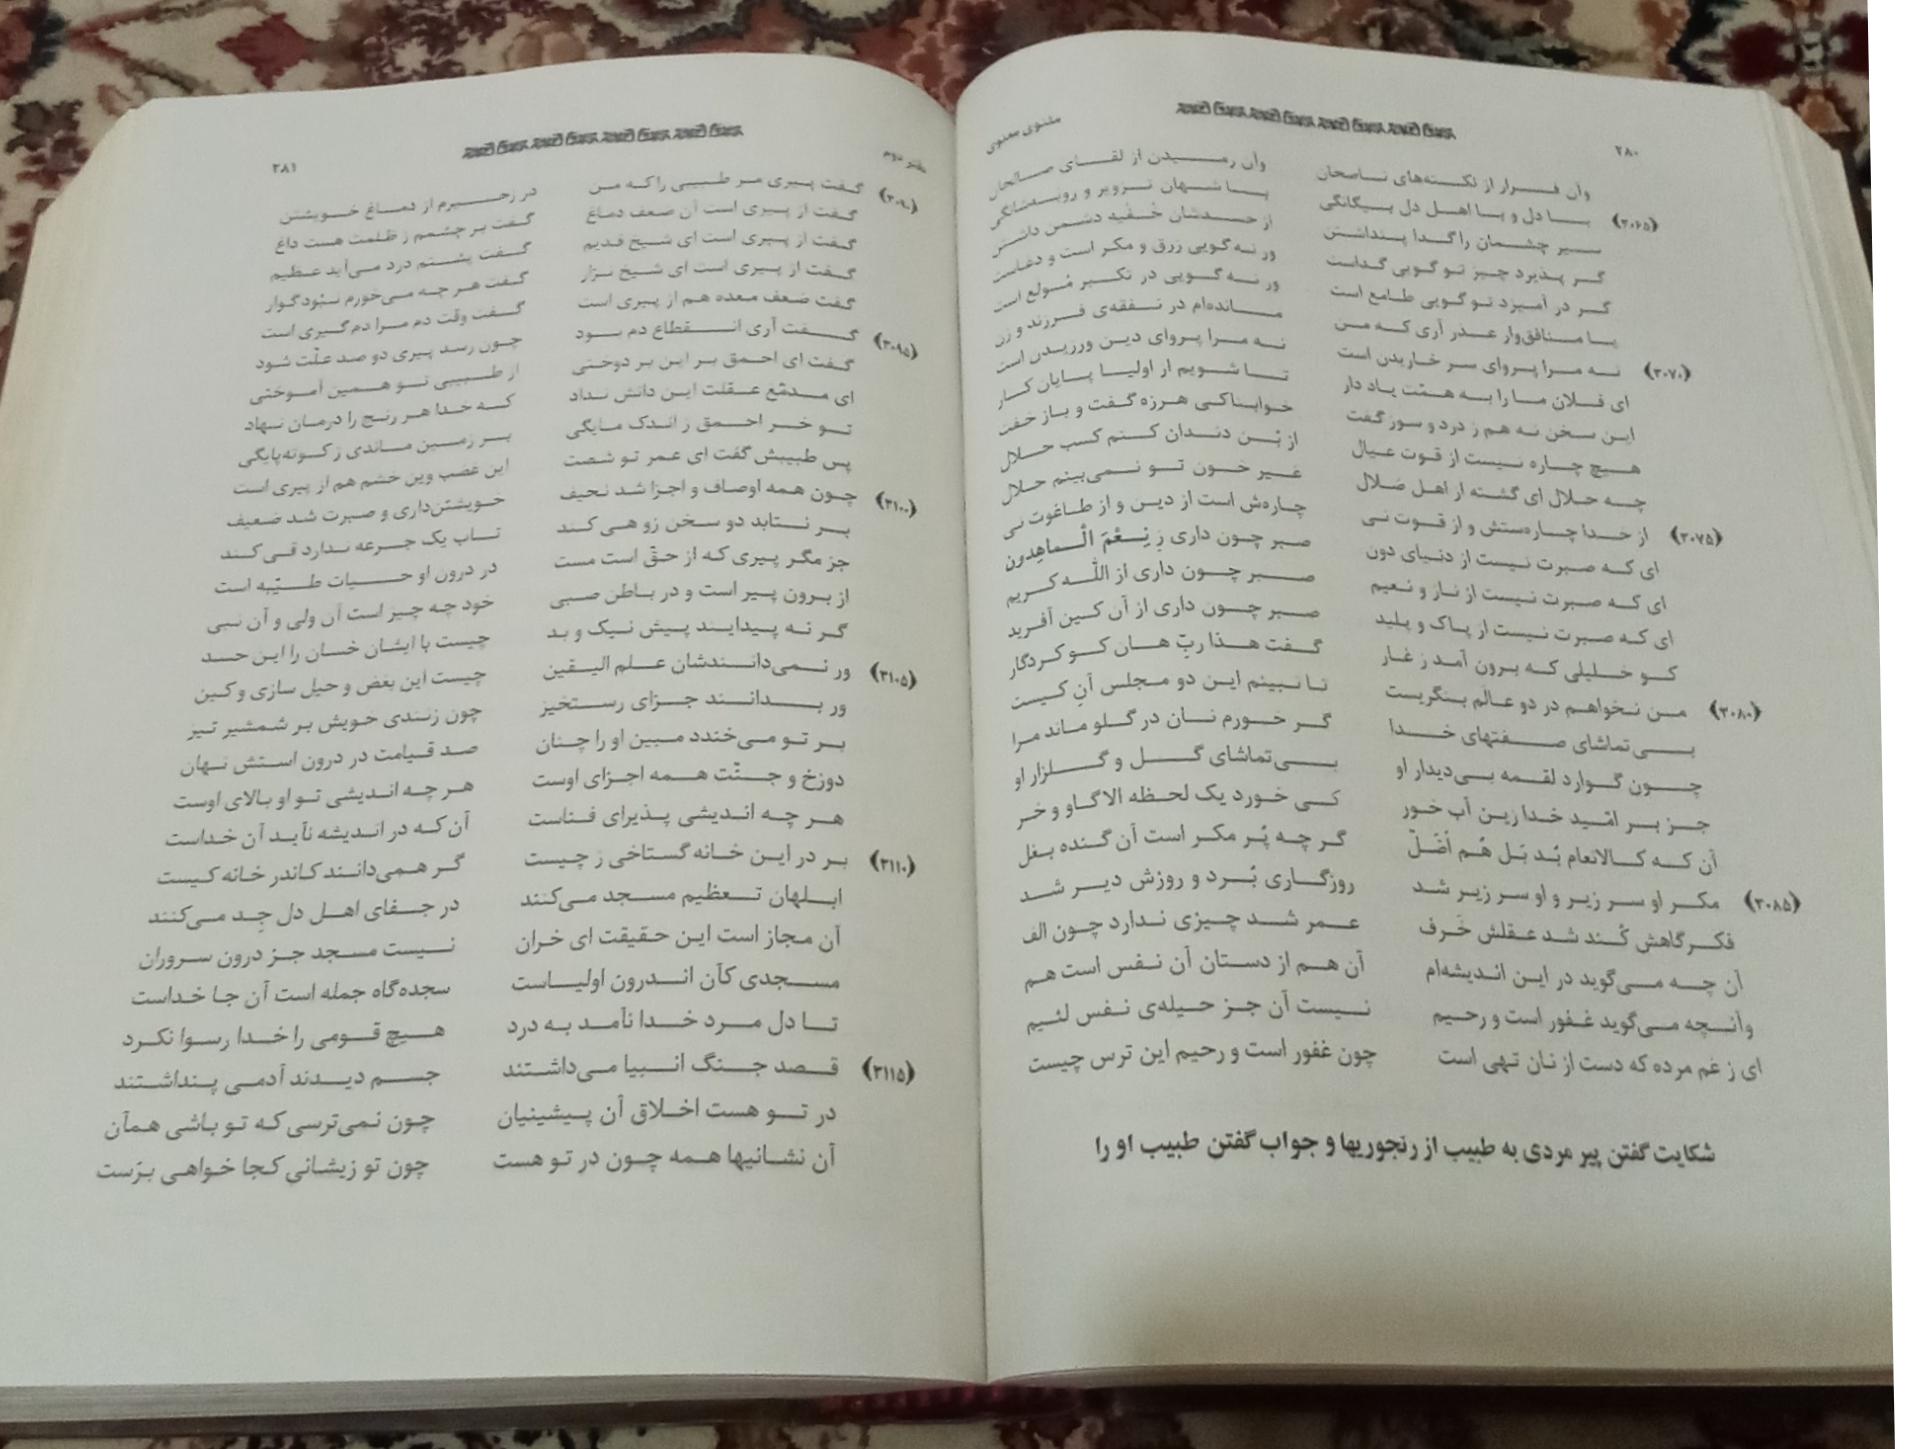 ۲۸۰
مثنوی معنوی
وآن فرار از نکته‌های ناصحان وآن رمیدن از لقای صالحان
(۳۰۶۵) با دل و با اهل دل بیگانگی با شهان تزویر و روبه‌شانگی
سیر چشمان را گدا پنداشتن از حسدشان خُفیه دشمن داشتن
گر پذیرد چیز تو گویی گداست ور نه گویی زرق و مکر است و دغاست
گر در آمیزد تو گویی طامع است ور نه گویی در تکبر مُولع است
یا منافق‌وار عذر آری که من مانده‌ام در نفقه‌ی فرزند و زن
(۳۰۷۰) نه مرا پروای سر خاریدن است نه مرا پروای دین ورزیدن است
ای فلان ما را به همّت یاد دار تا شویم از اولیا پایان کار
این سخن نه هم ز درد و سوز گفت خوابناکی هرزه گفت و باز خفت
هیچ چاره نیست از قوت عیال از بُن دندان کنم کسب حلال
چه حلال ای گشته از اهل ضلال غیر خون تو نمی‌بینم حلال
(۳۰۷۵) از خدا چاره‌ستش و از قوت نی چاره‌ش است از دین و از طاغوت نی
ای که صبرت نیست از دنیای دون صبر چون داری زِ نِعْمَ الْماهِدون
ای که صبرت نیست از ناز و نعیم صبر چون داری از اللّه کریم
ای که صبرت نیست از پاک و پلید صبر چون داری از آن کین آفرید
کو خلیلی که برون آمد ز غار گفت هذا ربِّ هان کو کردگار
(۳۰۸۰) من نخواهم در دو عالَم بنگریست تا نبینم این دو مجلس آنِ کیست
بی‌تماشای صفتهای خدا گر خورم نان در گلو ماند مرا
چون گوارد لقمه بی‌دیدار او بی‌تماشای گل و گلزار او
جز بر امّید خدا زین آب خور کی خورد یک لحظه الا گاو و خر
آن که کالانعام بُد بَل هُم أضَلّ گر چه پُر مکر است آن گنده بغل
(۳۰۸۵) مکر او سر زیر و او سر زیر شد روزگاری بُرد و روزش دیر شد
فکرگاهش کُند شد عقلش خَرف عمر شد چیزی ندارد چون الف
آن چه می‌گوید در این اندیشه‌ام آن هم از دستان آن نفس است هم
وآنچه می‌گوید غفور است و رحیم نیست آن جز حیله‌ی نفس لئیم
ای ز غم مرده که دست از نان تهی است چون غفور است و رحیم این ترس چیست
شکایت گفتن پیر مردی به طبیب از رنجوریها و جواب گفتن طبیب او را
دفتر دوم
۲۸۱
(۳۰۹۰) گفت پیری مر طبیبی را که من در زحیرم از دماغ خویشتن
گفت از پیری است آن ضعف دماغ گفت بر چشمم ز ظلمت هست داغ
گفت از پیری است ای شیخ قدیم گفت پشتم درد می‌آید عظیم
گفت از پیری است ای شیخ نزار گفت هر چه می‌خورم نبْود گوار
گفت ضعف معده هم از پیری است گفت وقت دم مرا دم‌گیری است
(۳۰۹۵) گفت آری انقطاع دم بود چون رسد پیری دو صد علّت شود
گفت ای احمق بر این بر دوختی از طبیبی تو همین آموختی
ای مدمّغ عقلت این دانش نداد که خدا هر رنج را درمان نهاد
تو خر احمق ز اندک مایگی بر زمین ماندی ز کوته‌پایگی
پس طبیبش گفت ای عمر تو شصت این غضب وین خشم هم از پیری است
(۳۱۰۰) چون همه اوصاف و اجزا شد نحیف خویشتن‌داری و صبرت شد ضعیف
بر نتابد دو سخن زو هی کند تاب یک جرعه ندارد قی کند
جز مگر پیری که از حقّ است مست در درون او حیات طیّبه است
از برون پیر است و در باطن صبی خود چه چیز است آن ولی و آن نبی
گر نه پیدایند پیش نیک و بد چیست با ایشان خسان را این حسد
(۳۱۰۵) ور نمی‌دانندشان علم الیقین چیست این بغض و حیل سازی و کین
ور بدانند جزای رستخیز چون زنندی خویش بر شمشیر تیز
بر تو می‌خندد مبین او را چنان صد قیامت در درون استش نهان
دوزخ و جنّت همه اجزای اوست هر چه اندیشی تو او بالای اوست
هر چه اندیشی پذیرای فناست آن که در اندیشه نآید آن خداست
(۳۱۱۰) بر در این خانه گستاخی ز چیست گر همی‌دانند کاندر خانه کیست
ابلهان تعظیم مسجد می‌کنند در جفای اهل دل جِد می‌کنند
آن مجاز است این حقیقت ای خران نیست مسجد جز درون سروران
مسجدی کآن اندرون اولیاست سجده‌گاه جمله است آن جا خداست
تا دل مرد خدا نآمد به درد هیچ قومی را خدا رسوا نکرد
(۳۱۱۵) قصد جنگ انبیا می‌داشتند جسم دیدند آدمی پنداشتند
در تو هست اخلاق آن پیشینیان چون نمی‌ترسی که تو باشی همآن
آن نشانیها همه چون در تو هست چون تو زیشانی کجا خواهی برَست